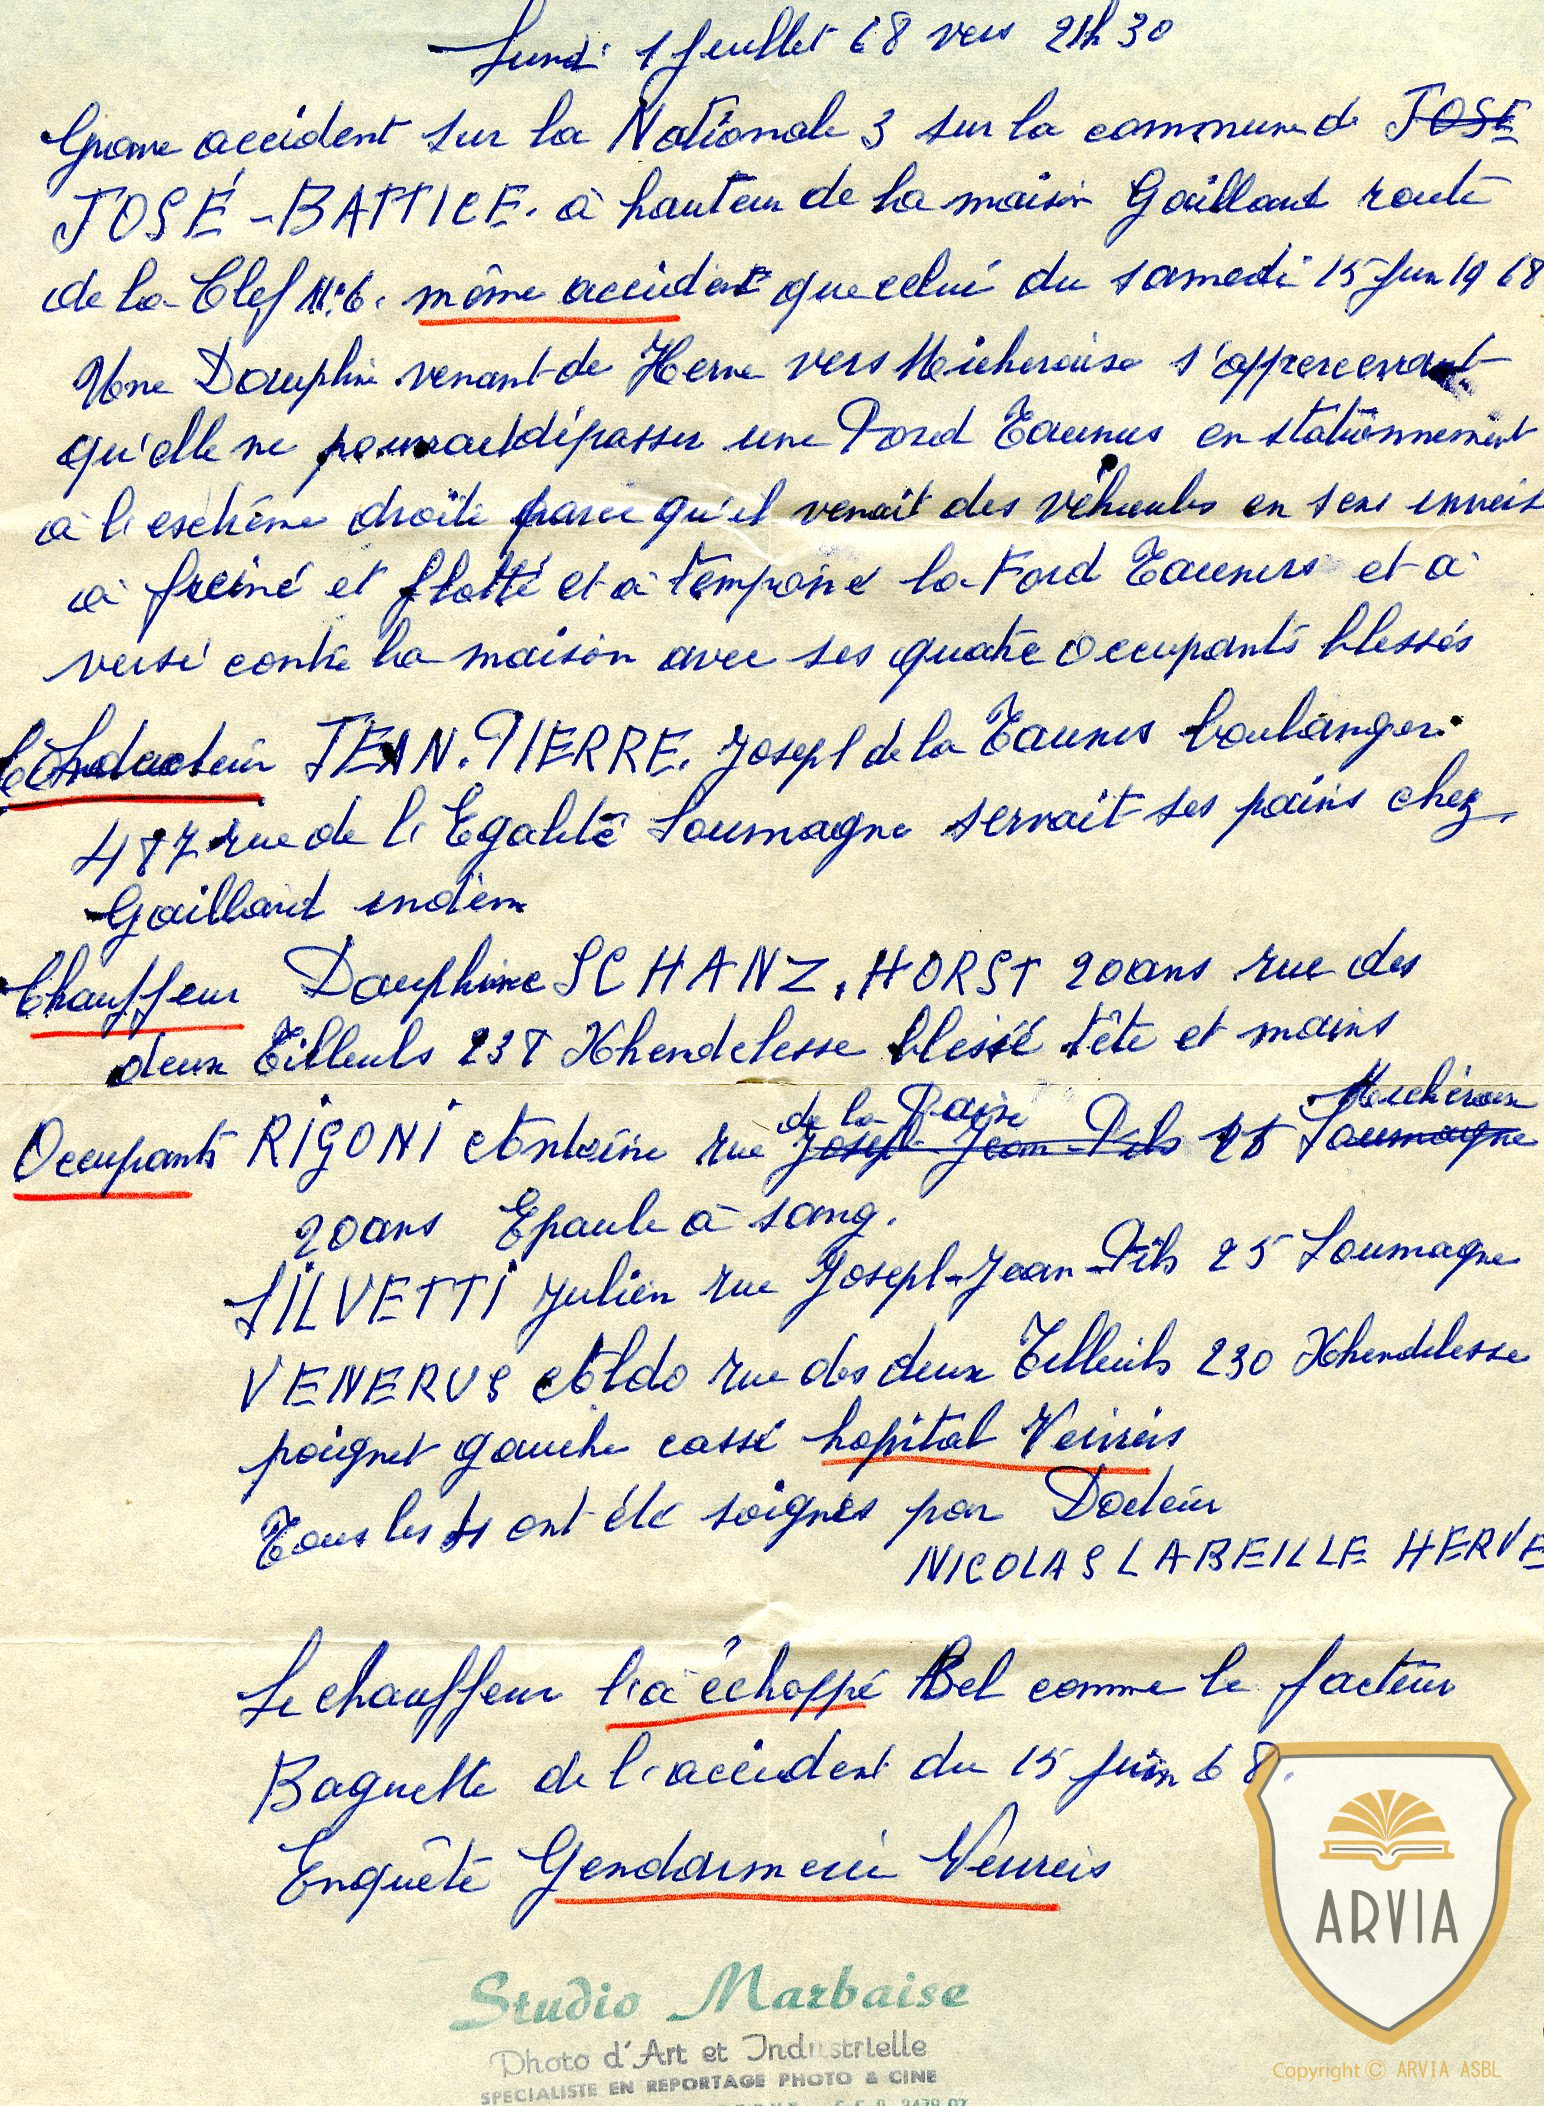 Lundi 1 Juillet 68 vers 21h30
Grave accident sur la Nationale 3 sur la commune de JOSE
JOSÉ-BATTICE. à hauteur de la maison Gaillard route
de la Clef N°6. même accident que celui du samedi 15 Juin 1968
Une Dauphine venant de Herve vers Micheroux s'appercevant
qu'elle ne pourrait dépasser une Ford Taunus en stationnement
à l'extrême droite parce qu'il venait des véhicules en sens inverse
a freiné et flotté et a temponé la Ford Taunus et a
versé contre la maison avec ses quatre occupants blessés
Conducteur JEAN.PIERRE. Joseph de la Taunus boulanger.
487 rue de l'Egalité Soumagne servait ses pains chez
Gaillard indem
Chauffeur Dauphine SCHANZ. HORST 20ans rue des
deux Tilleuls 238 Xhendelesse blessé tête et mains
de la Micheroux
Occupants RIGONI Antoine rue Joseph Jean Fils 25 Soumagne
20ans Epaule à sang.
SILVETTI Julien rue Joseph-Jean-Fils 25 Soumagne
VENERUS Aldo rue des deux Tilleuls 230 Xhendelesse
poignet gauche cassé hopital Verviers
Tous les 4 ont été soignés par Docteur
NICOLAS LABEILLE HERVE
Le chauffeur l'a échappé Bel comme le facteur
Baguette de l'accident du 15 juin 68.
Enquête Gendarmerie Verviers
Studio Marbaise
Photo d'Art et Industrielle
SPECIALISTE EN REPORTAGE PHOTO & CINE
ARVIA
Copyright © ARVIA ASBL